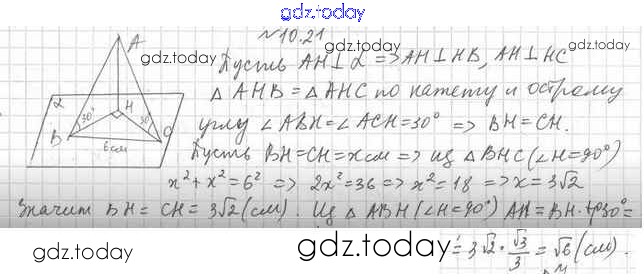 gdz.today
№10.21
gdz.today gdz.today
Пусть AH⊥α => AH⊥HB, AH⊥HC
△AHB = △AHC по катету и острому
углу ∠ABH = ∠ACH = 30° => BH = CH.
Пусть BH = CH = x см => из △BHC (∠H = 90°)
x² + x² = 6² => 2x² = 36 => x² = 18 => x = 3√2
Значит BH = CH = 3√2 (см). Из △ABH (∠H = 90°) AH = BH · tg30° =
= 3√2 · √3/3 = √6 (см).
A
α
H
30° 30°
B C
6 см
gdz.today gdz.today
gdz.today gdz.today